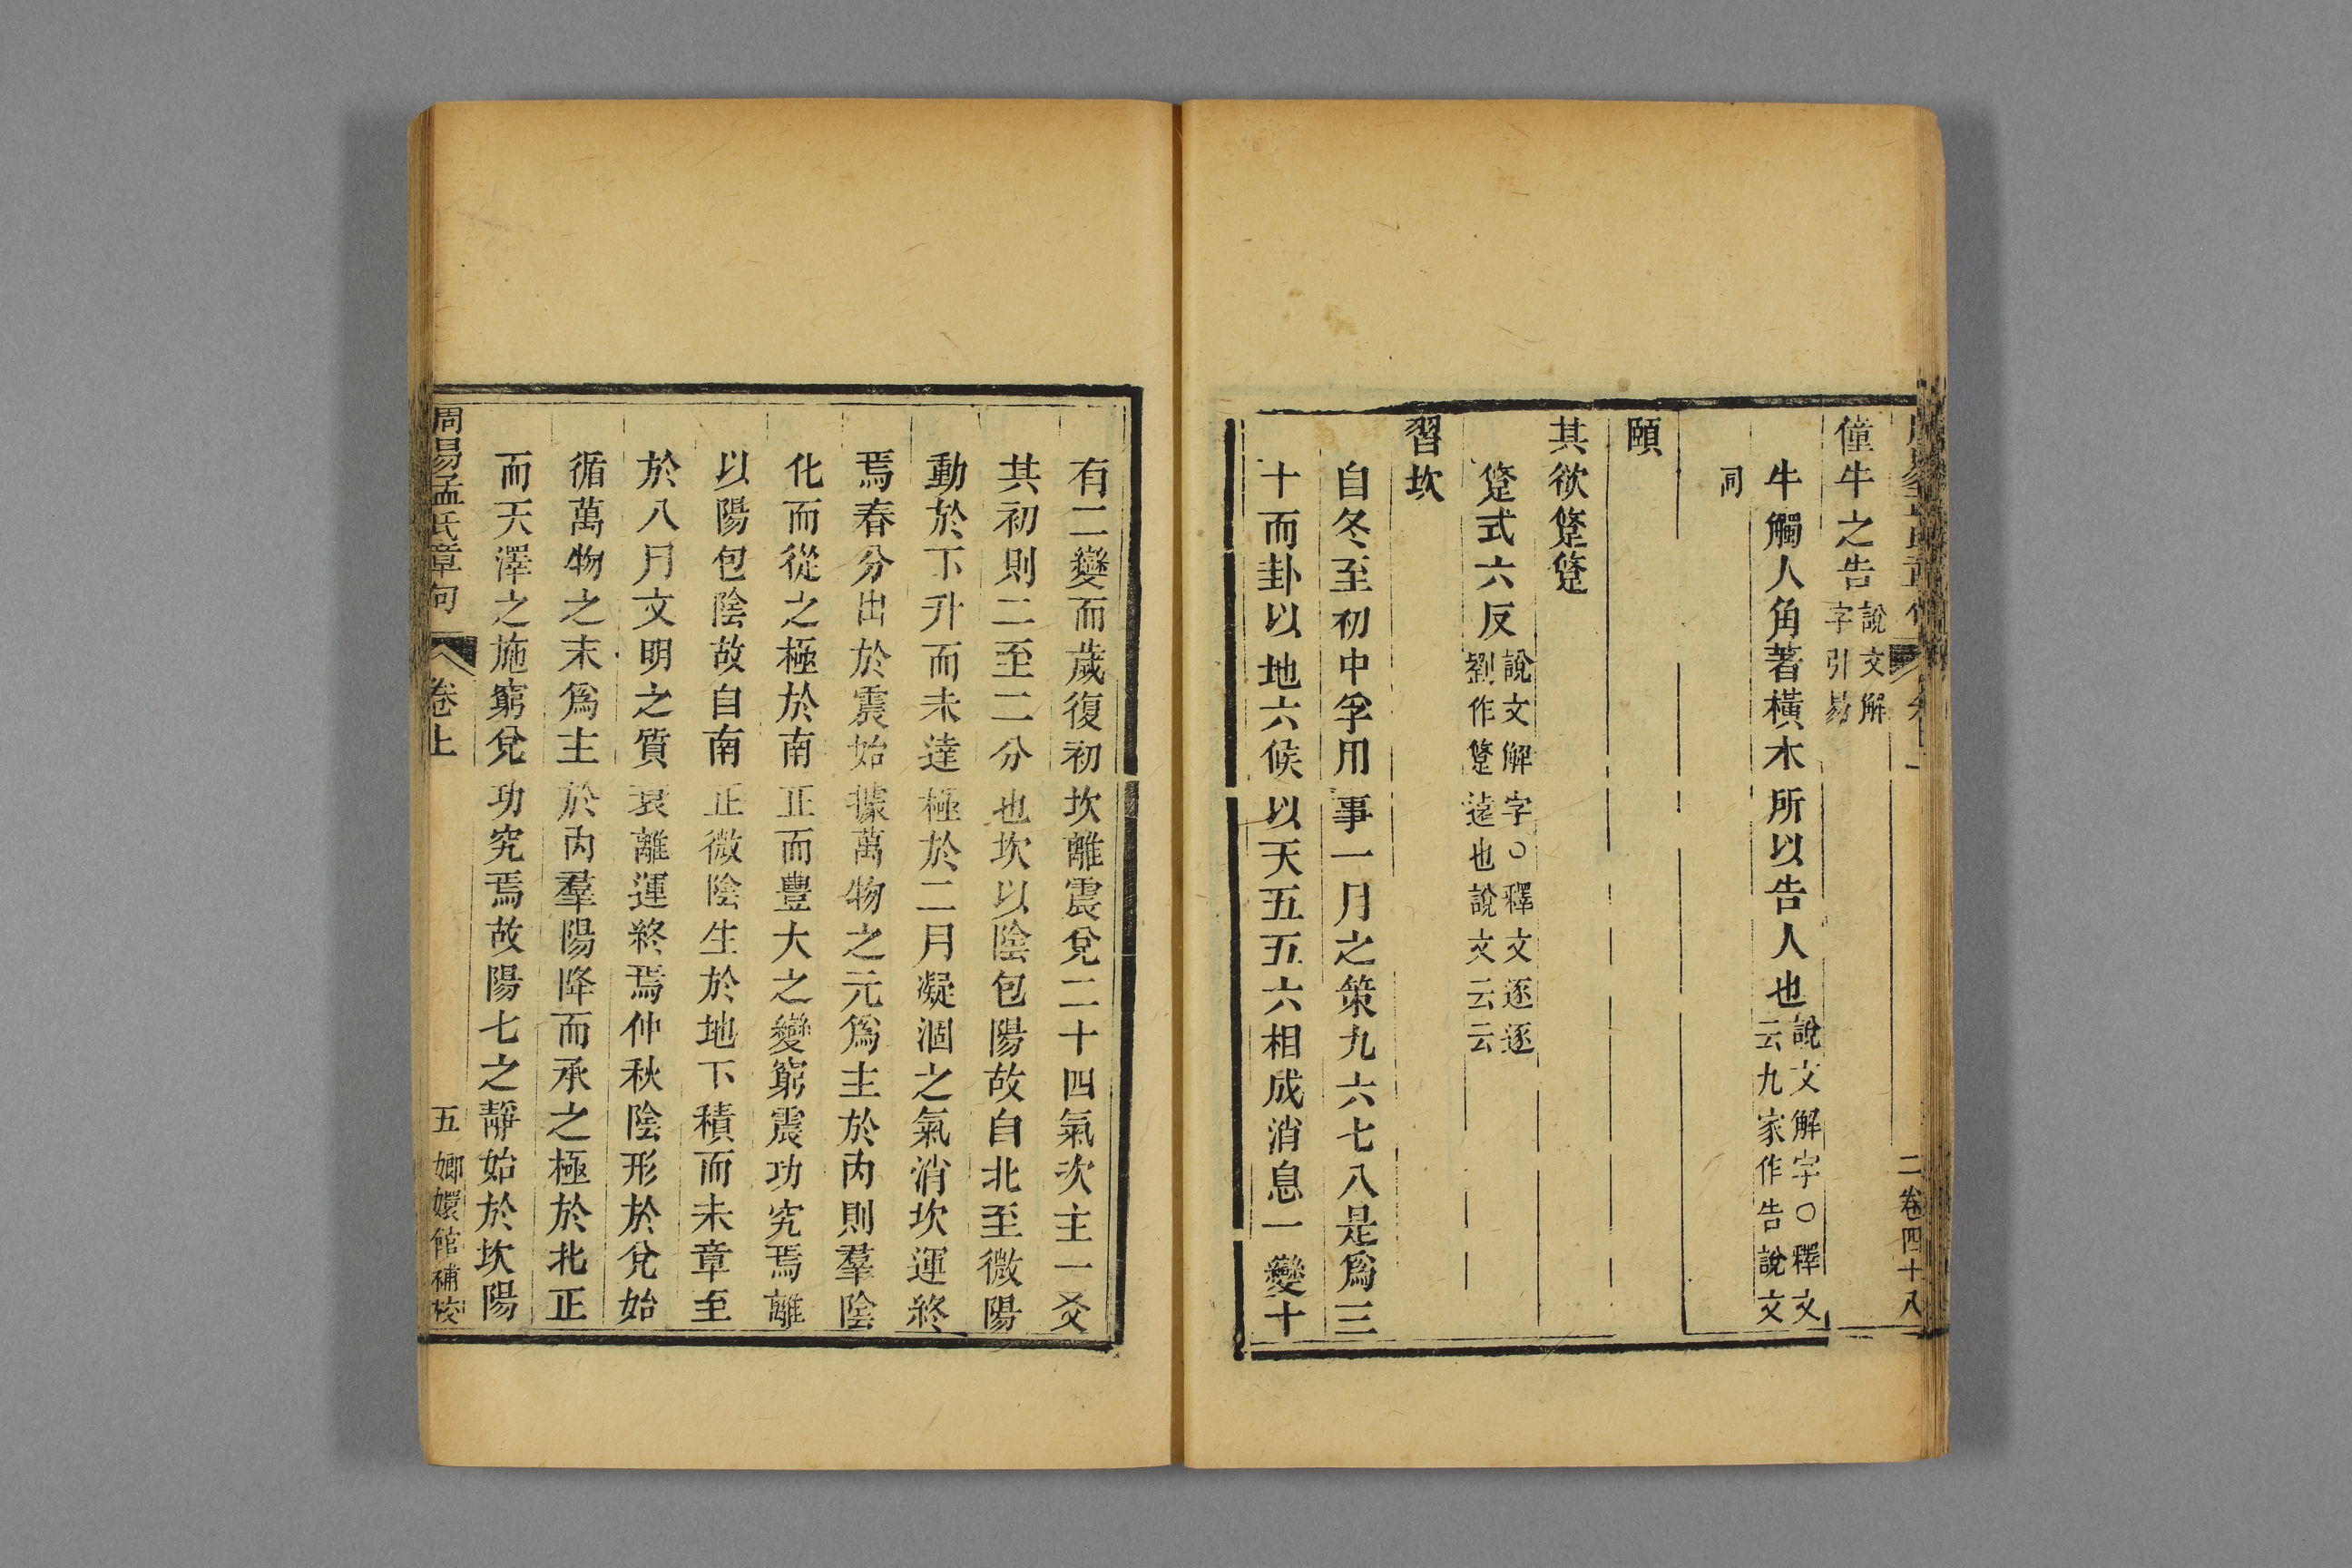 僮牛之告說文解字引易
牛觸人角著橫木所以告人也說文解字○釋文云九家作告說文
同
頤
其欲跾跾
跾式六反說文解字○釋文逐逐劉作跾遠也說文云云
習坎
自冬至初中孚用事一月之策九六七八是爲三
十而卦以地六候以天五五六相成消息一變十
二卷四十八
有二變而歲復初坎離震兌二十四氣次主一爻
其初則二至二分也坎以陰包陽故自北至微陽
動於下升而未達極於二月凝涸之氣消坎運終
焉春分出於震始據萬物之元爲主於內則羣陰
化而從之極於南正而豐大之變窮震功究焉離
以陽包陰故自南正微陰生於地下積而未章至
於八月文明之質衰離運終焉仲秋陰形於兌始
循萬物之末爲主於內羣陽降而承之極於北正
而天澤之施窮兌功究焉故陽七之靜始於坎陽
周易孟氏章句 卷上 五 嫏嬛館補校